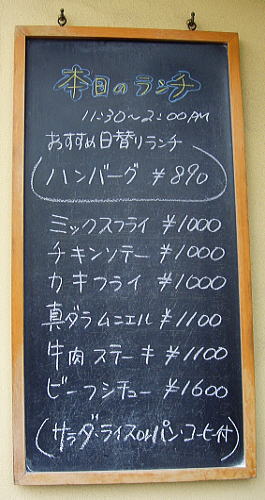 本日のランチ
11:30～2:00PM
おすすめ日替りランチ
ハンバーグ ¥890
ミックスフライ ¥1000
チキンソテー ¥1000
カキフライ ¥1000
真ダラムニエル ¥1100
牛肉ステーキ ¥1100
ビーフシチュー ¥1600
(サラダ・ライスorパン・コーヒー付)